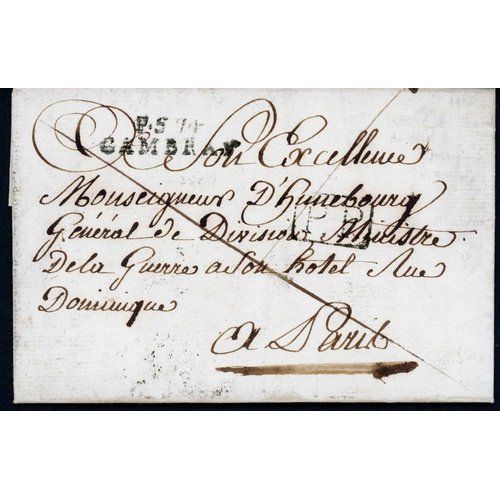 P.S 74
CAMBRAY
A Son Excellence
Monseigneur D'Hunebourg
Général de Division Ministre
De la Guerre a Son hotel Rue
Dominique
a Paris